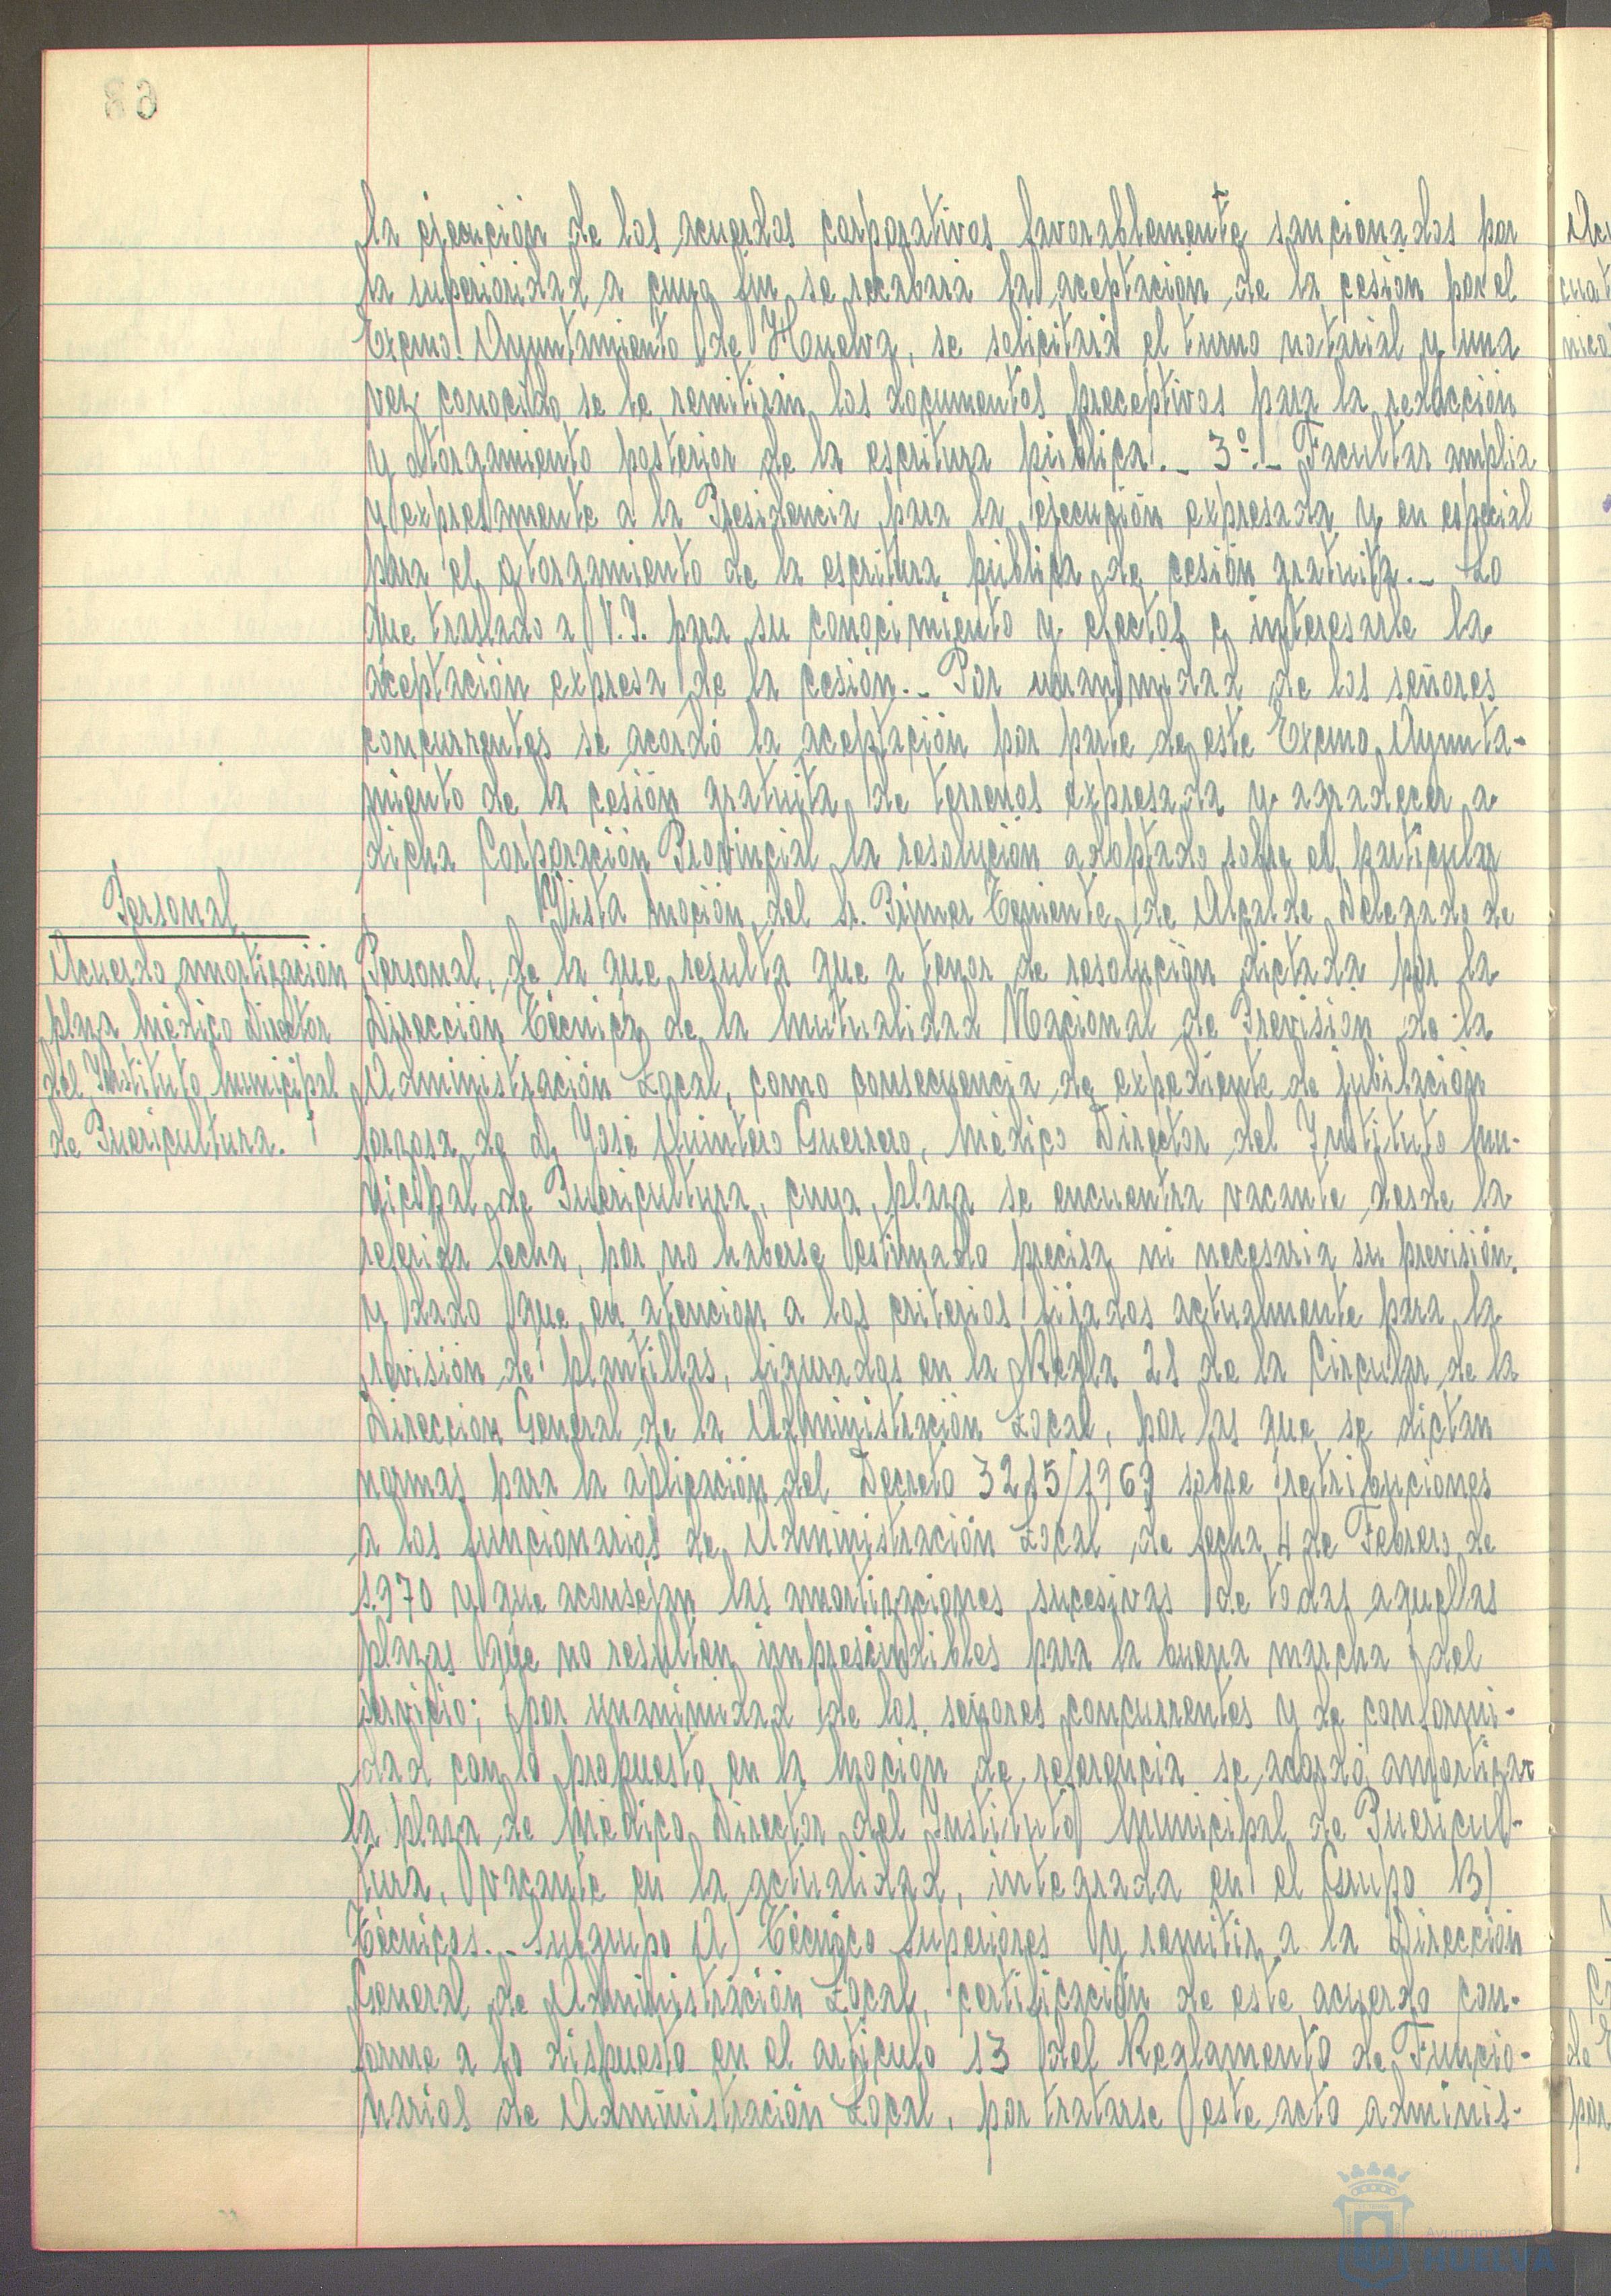 la ejecución de los acuerdos corporativos favorablemente sancionados por
la superioridad a cuyo fin se recabará la aceptación de la cesión por el
Excmo. Ayuntamiento de Huelva, se solicitará el turno notarial y una
vez conocido se le remitirán los documentos preceptivos para la redacción
y otorgamiento posterior de la escritura pública.- 3º.- Facultar amplia
y expresamente a la Presidencia para la ejecución expresada y en especial
para el otorgamiento de la escritura pública de cesión gratuita.- Lo
que traslado a V.I. para su conocimiento y efectos e interesarle la
aceptación expresa de la cesión.- Por unanimidad de los señores
concurrentes se acordó la aceptación por parte de este Excmo. Ayunta-
miento de la cesión gratuita de terrenos expresada y agradecer a
dicha Corporación Provincial la resolución adoptado sobre el particular
Personal
Acuerdo amortización
plaza Médico Director
del Instituto Municipal
de Puericultura.
Vista moción del Sr. Primer Teniente de Alcalde Delegado de
Personal, de la que resulta que a tenor de resolución dictada por la
Dirección Técnica de la Mutualidad Nacional de Previsión de la
Administración Local, como consecuencia de expediente de jubilación
forzosa de D. José Quintero Guerrero, Médico Director del Instituto Mu-
nicipal de Puericultura, cuya plaza se encuentra vacante desde la
referida fecha, por no haberse estimado precisa ni necesaria su previsión.
y dado que en atención a los criterios fijados actualmente para la
revisión de plantillas, figurados en la Regla 21 de la Circular de la
Dirección General de la Administración Local, por las que se dictan
normas para la aplicación del Decreto 3215/1969 sobre retribuciones
a los funcionarios de Administración Local de fecha 4 de Febrero de
1.970 y que aconsejan las amortizaciones sucesivas de todas aquellas
plazas que no resulten imprescindibles para la buena marcha del
servicio; por unanimidad de los señores concurrentes y de conformi-
dad con lo propuesto en la moción de referencia se acordó amortizar
la plaza de Médico Director del Instituto Municipal de Puericul-
tura, vacante en la actualidad, integrada en el Grupo B)
Técnicos.- Subgrupo A) Técnico Superiores y remitir a la Dirección
General de Administración Local, certificación de este acuerdo con-
forme a lo dispuesto en el artículo 13 del Reglamento de Funcio-
narios de Administración Local, por tratarse este acto adminis-
Ayuntamiento de
HUELVA